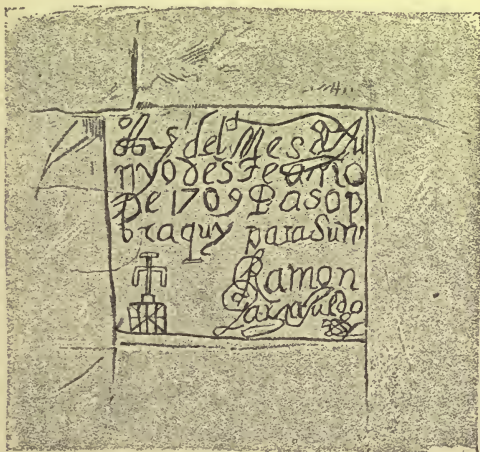 del Mes de Ju
nyo deste anio
De 1709 Paso p
or aquy para Suni
Ramon
Garzia Jurado